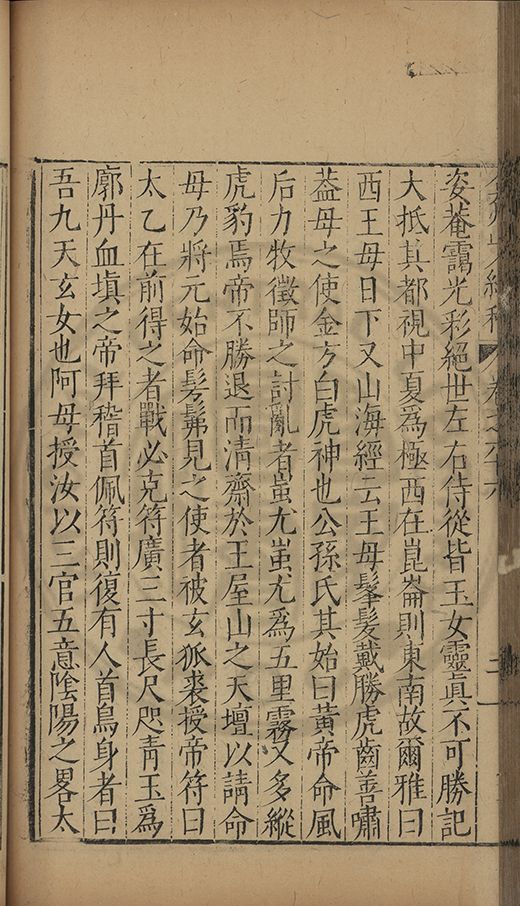 姿菴靄光彩絕世左右侍從皆玉女靈眞不可勝記
大抵其都視中夏爲極西在崑崙則東南故爾雅曰
西王母日下又山海經云王母髼髮戴勝虎齒善嘯
葢母之使金方白虎神也公孫氏其始曰黃帝命風
后力牧徵師之討亂者蚩尤蚩尤爲五里霧又多縱
虎豹焉帝不勝退而清齋於王屋山之天壇以請命
母乃將元始命髣髴見之使者被玄狐裘授帝符曰
太乙在前得之者戰必克符廣三寸長尺咫青玉爲
廓丹血塡之帝拜稽首佩符則復有人首鳥身者曰
吾九天玄女也阿母授汝以三官五意陰陽之畧太